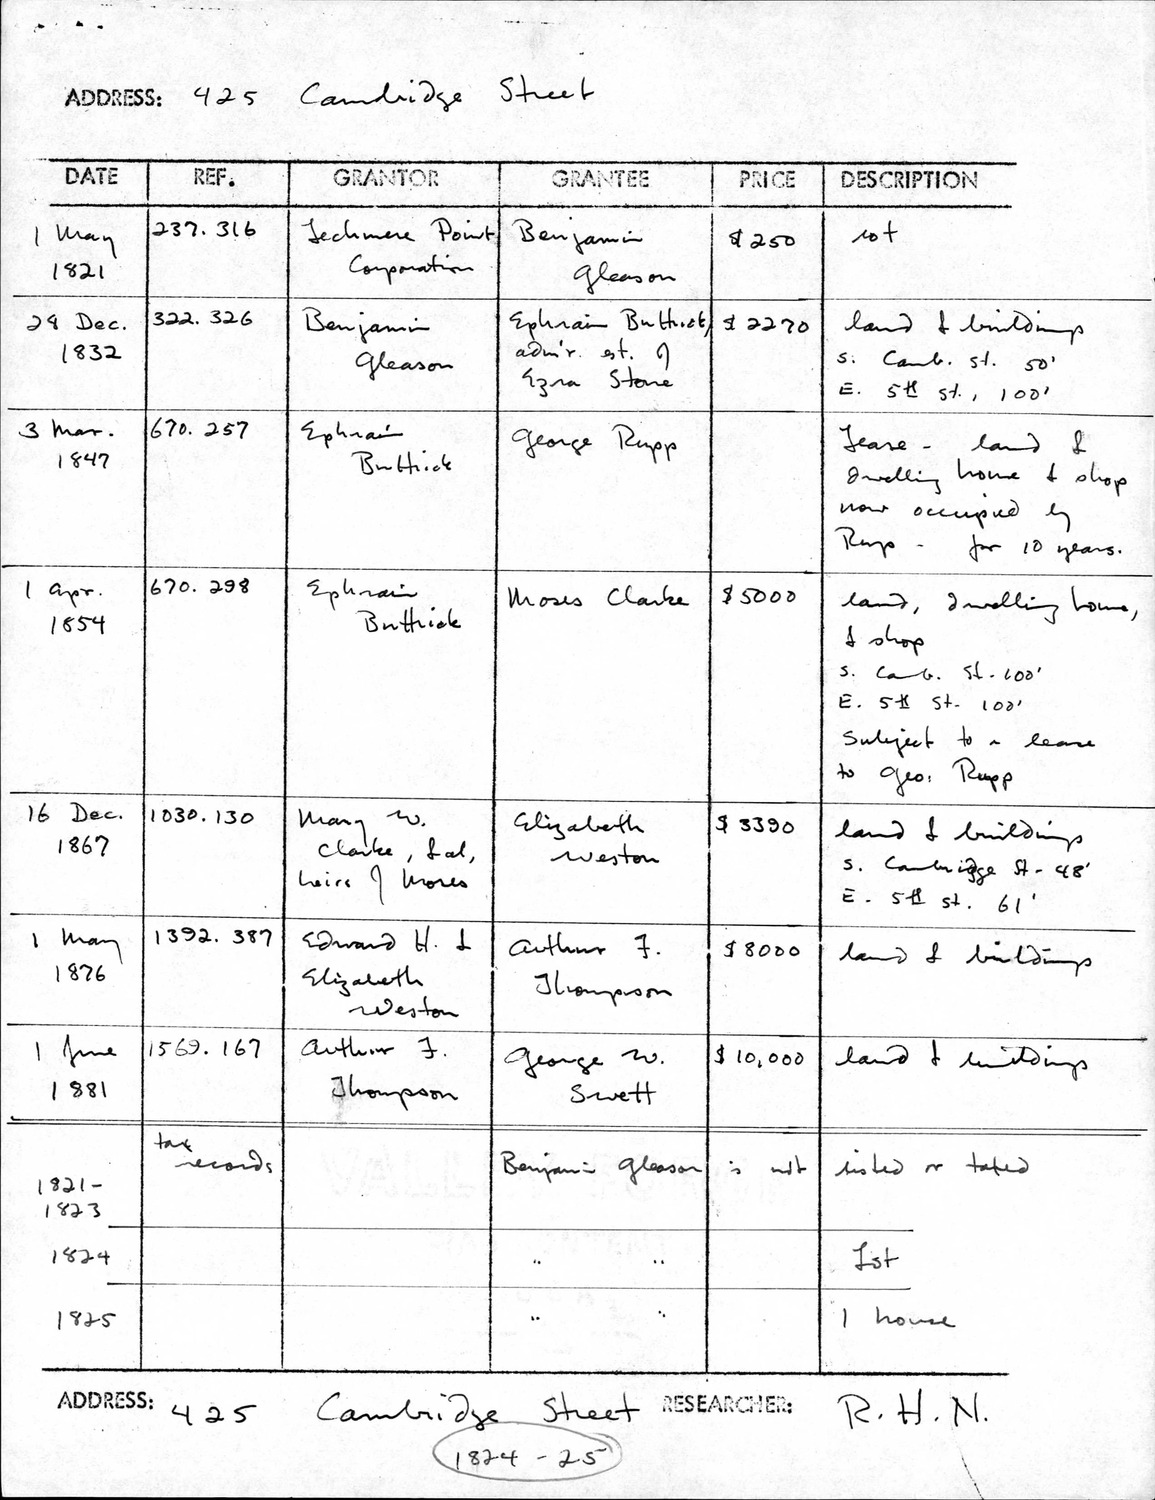 ADDRESS: 425 Cambridge Street
DATE REF. GRANTOR GRANTEE PRICE DESCRIPTION
1 May 237.316 Lechmere Point Benjamin $250 lot
1821 Corporation Gleason
28 Dec. 322.326 Benjamin Ephraim Buttrick, $2270 land & buildings
1832 Gleason adm'r. est. of S. Camb. St. 50'
Ezra Stone E. 5th St., 100'
3 Mar. 670.257 Ephraim George Rupp Lease - land &
1847 Buttrick dwelling house & shop
now occupied by
Rupp - for 10 years.
1 Apr. 670.298 Ephraim Moses Clarke $5000 land, dwelling house,
1854 Buttrick & shop
S. Camb. St. - 100'
E. 5th St. 100'
Subject to a lease
to Geo. Rupp
16 Dec. 1030.130 Mary W. Elizabeth $3390 land & buildings
1867 Clarke, & al, Weston S. Cambridge St - 48'
heirs of Moses E. 5th St. 61'
1 May 1392.387 Edward H. & Arthur F. $8000 land & buildings
1876 Elizabeth Thompson
Weston
1 June 1569.167 Arthur F. George W. $10,000 land & buildings
1881 Thompson Swett
tax
records Benjamin Gleason is not listed or taxed
1821-
1823
1824 " " Lot
1825 " " 1 house
ADDRESS: 425 Cambridge Street RESEARCHER: R.H.N.
1824-25